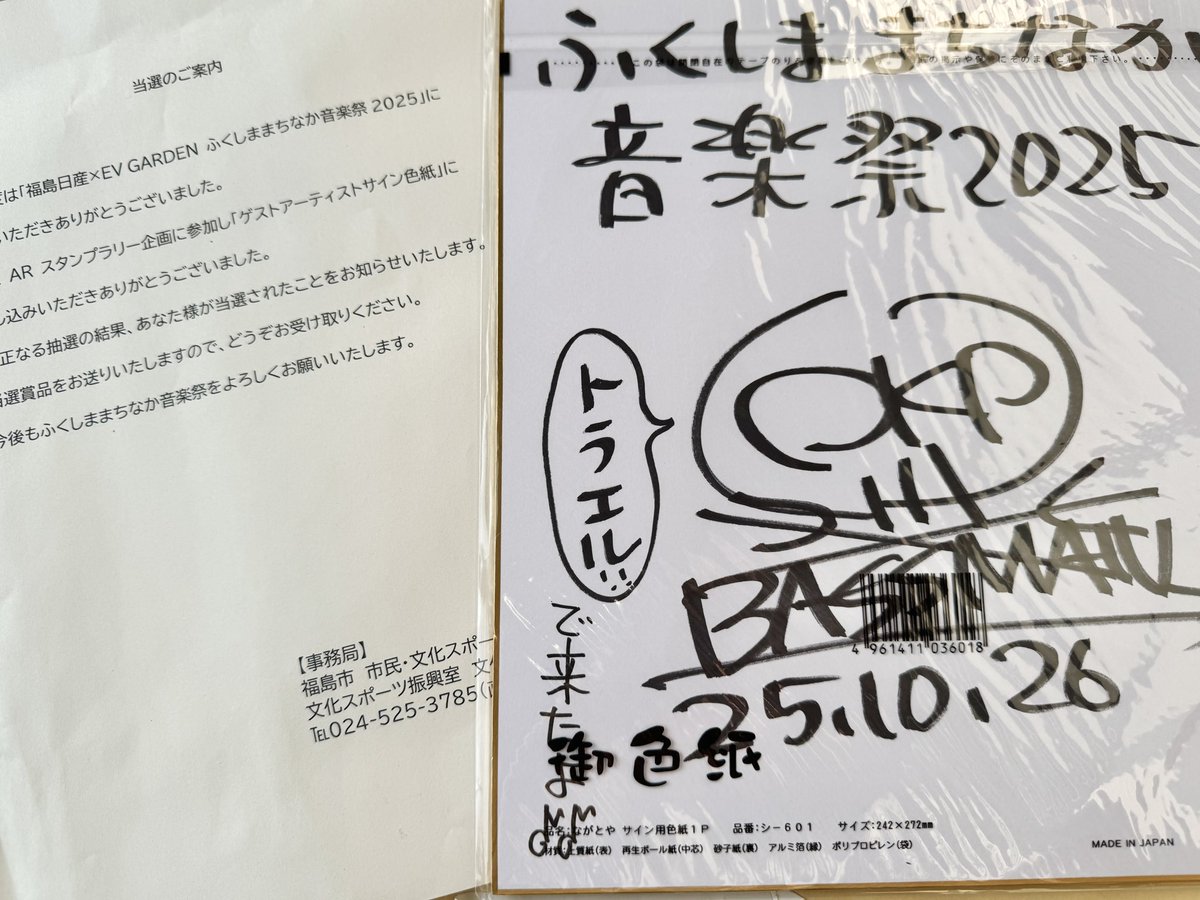 当選のご案内
は「福島日産×EV GARDEN ふくしままちなか音楽祭2025」に
いただきありがとうございました。
AR スタンプラリー企画に参加し「ゲストアーティストサイン色紙」に
し込みいただきありがとうございました。
正なる抽選の結果、あなた様が当選されたことをお知らせいたします。
当選賞品をお送りいたしますので、どうぞお受け取りください。
今後もふくしままちなか音楽祭をよろしくお願いいたします。
【事務局】
福島市 市民・文化スポー
文化スポーツ振興室 文
℡024-525-3785
ふくしま まちなか
音楽祭2025
トラエル!!
で来たよ
25.10.26
4 961411 036018
御色紙
品名:ながとや サイン用色紙1P 品番:シ-601 サイズ:242×272mm
材質:上質紙(表) 再生ボール紙(中芯) 砂子紙(裏) アルミ箔(縁) ポリプロピレン(袋)
MADE IN JAPAN